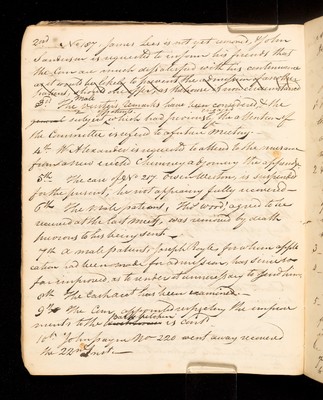 2nd No 187 James Lees is not yet removed, & John
Sanderson is requested to inform his friends that
the Com are much dissatisfied with his continuance
as it would be likely to prevent the admission of another
patient should one offer, as the house is now circumstanced
3rd The Visitors remarks have been considered & the
subject which had previously the attention of
the Committee is referd to a future Meeting.
4th Wm Alexander is requested to attend to the nuisance
from a new erected Chimney adjoining the
5th The case of No 207. Owen Weston, is suspended
for the present, he not appearing fully recovered —
6th The Male patient, "His word", agreed to be
received at the last meetg, was removed by death
previous to his being sent —
7th A male patient Joseph Royle, for whom appli
cation had been made for admission, has since so
far improved, as to render it unnecessary to send him
8th The Cash acct has been examined —
9th The Com appointed respecting the improve
ments to the Bath kitchen is contd
10th John payne No 220 went away recovered
the 22nd Inst —